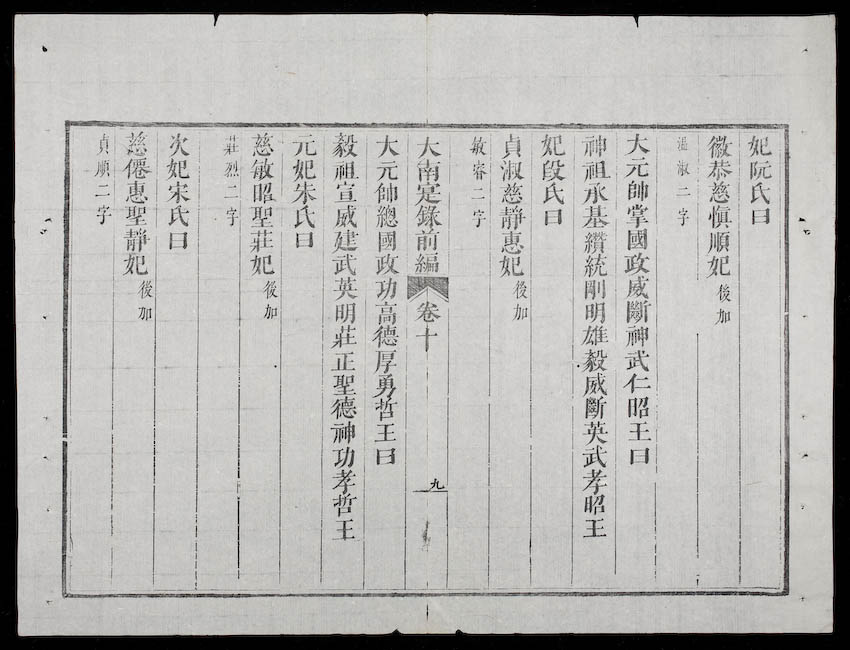 妃阮氏曰
徽恭慈愼順妃後加
溫淑二字
大元帥掌國政威斷神武仁昭王曰
神祖承基纘統剛明雄毅威斷英武孝昭王
妃段氏曰
貞淑慈靜惠妃後加
敏睿二字
大南寔錄前編 卷十 九
大元帥總國政功高德厚勇哲王曰
毅祖宣威建武英明莊正聖德神功孝哲王
元妃朱氏曰
慈敏昭聖莊妃後加
莊烈二字
次妃宋氏曰
慈僊惠聖靜妃後加
貞順二字